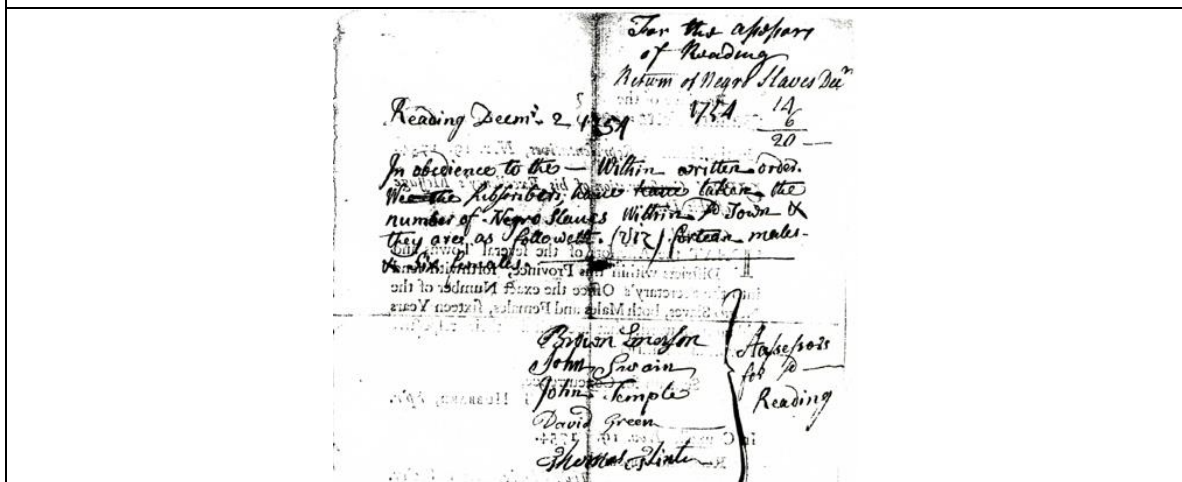 For the assessors
of Reading
Return of Negro Slaves Decr
1754
14
6
20
Reading Decmr. 2 1754
In obedience to the — Within written order.
Wee the subscribers, have have taken the
number of Negro Slaves Within sd Town &
they are as followeth. (Viz) forteen males
& six females.
of the several Towns and
Districts within this Province, forthwith send
into the Secretary's Office the exact Number of the
Slaves, both Males and Females, sixteen Years
Brown Emerson
John Swain
John Temple
David Green
Thomas Flint
Assessors
for sd
Reading